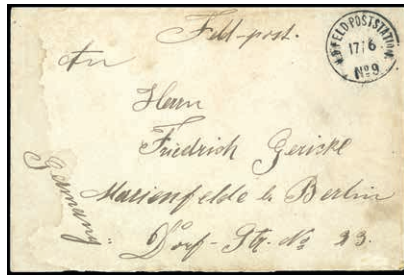 Feld-post.
K.D. FELD-POSTSTATION
17/6
No 9
An
Herrn
Friedrich Gericke
Marienfelde b. Berlin
Dorf-Str. No 23.
Germany.